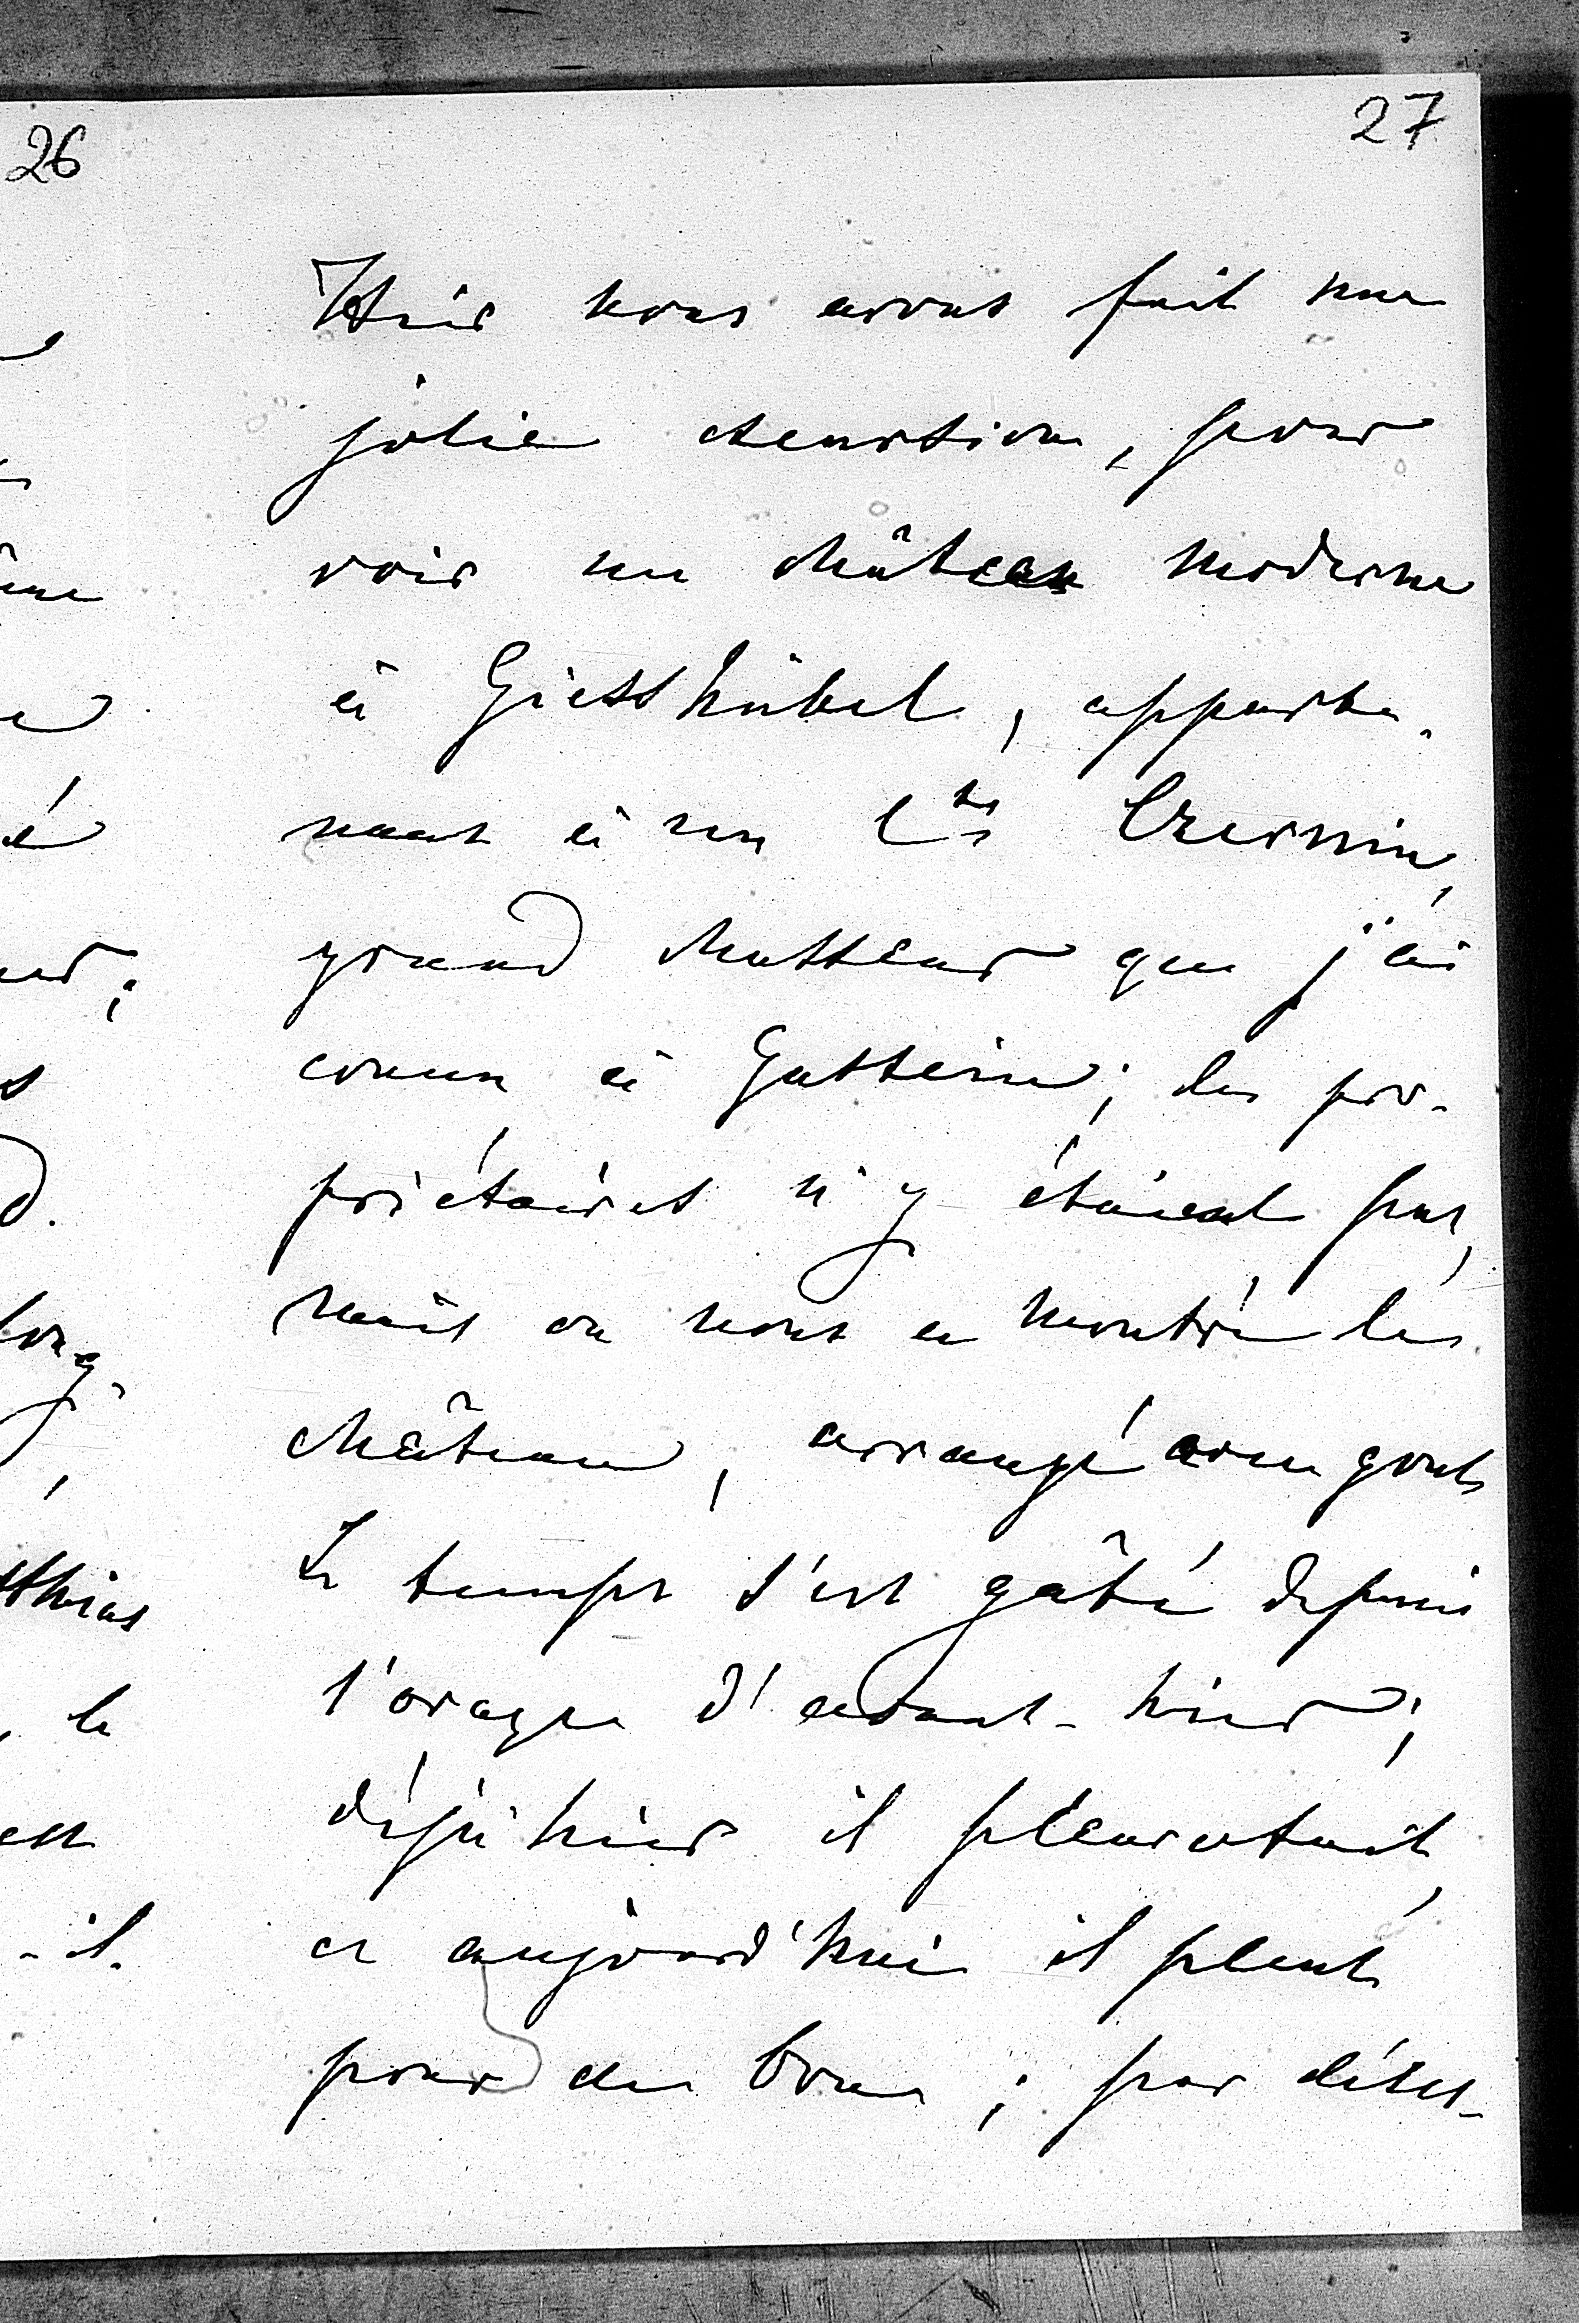 26
27
Hier nous avons fait une
jolie excursion, pour
voir un château moderne
à Giesshübel, apparte-
nant à un Cte Czernin,
grand chasseur que j'ai
connu à Gastein; les pro-
priétaires n'y étaient pas,
mais on nous a montré le
château, arrangé avec goût
Le temps s'est gâté depuis
l'orage d'avant-hier;
déjà hier il pleuvotait,
et aujourd'hui il pleut
pour de bon; par déses-